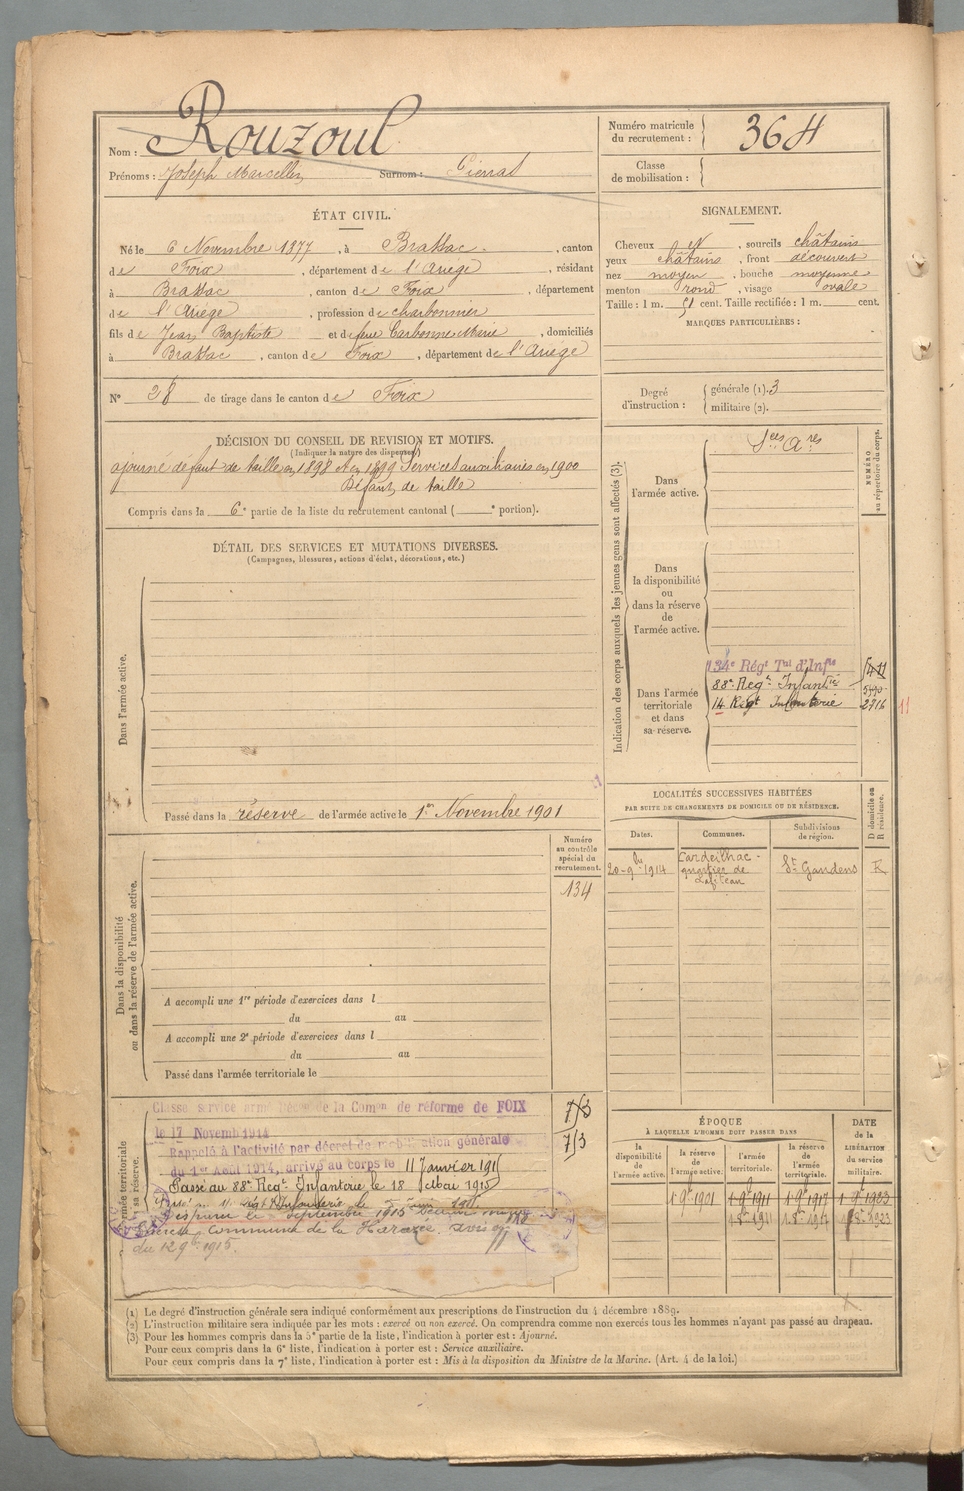 Nom : Rouzoul
Prénoms : Joseph Marcellin Surnom : Pierrat
Numéro matricule du recrutement : 364
Classe de mobilisation :
ÉTAT CIVIL.
Né le 6 Novembre 1877, à Brassac, canton
de Foix, département de l'Ariège, résidant
à Brassac, canton de Foix, département
de l'Ariège, profession de charbonnier
fils de Jean Baptiste et de feue Carbonne Marie, domiciliés
à Brassac, canton de Foix, département de l'Ariège
N° 28 de tirage dans le canton de Foix
SIGNALEMENT.
Cheveux N, sourcils châtains
yeux châtains, front découvert
nez moyen, bouche moyenne
menton rond, visage ovale
Taille : 1 m. 51 cent. Taille rectifiée : 1 m. cent.
MARQUES PARTICULIÈRES :
Degré d'instruction : générale (1). 3
militaire (2).
DÉCISION DU CONSEIL DE REVISION ET MOTIFS.
(Indiquer la nature des dispenses.)
ajourné défaut de taille en 1898 et en 1899 Services auxiliaires en 1900
Défaut de taille
Compris dans la 6e partie de la liste du recrutement cantonal ( e portion).
DÉTAIL DES SERVICES ET MUTATIONS DIVERSES.
(Campagnes, blessures, actions d'éclat, décorations, etc.)
Dans l'armée active.
Passé dans la réserve de l'armée active le 1er Novembre 1901
Indication des corps auxquels les jeunes gens sont affectés (3).
NUMÉRO au répertoire du corps.
Dans l'armée active.
Sces Ares
Dans la disponibilité ou dans la réserve de l'armée active.
Dans l'armée territoriale et dans sa réserve.
134e Régt Tal d'Infie
88e Regt Infanterie
14 Régt Infanterie 2716
11
LOCALITÉS SUCCESSIVES HABITÉES
PAR SUITE DE CHANGEMENTS DE DOMICILE OU DE RÉSIDENCE.
Dates. Communes. Subdivisions de région. D domicile ou R résidence.
20-9bre 1914 Cardeilhac - quartier de St Gaudens R
Dans la disponibilité ou dans la réserve de l'armée active.
Numéro au contrôle spécial du recrutement.
134
A accompli une 1re période d'exercices dans l
du au
A accompli une 2e période d'exercices dans l
du au
Passé dans l'armée territoriale le
Dans l'armée territoriale et dans sa réserve.
Classé service armé Décon de la Comon de réforme de FOIX
le 17 Novemb 1914
Rappelé à l'activité par décret de mobilisation générale
du 1er Août 1914, arrivé au corps le 11 Janvier 1915
Passé au 88e Regt Infanterie le 18 Mai 1915
Infanterie le Juin 1915
disparu le Septembre 1915
commune de la Harazée. Avis
du 12 9bre 1915.
7/3
7/3
ÉPOQUE
À LAQUELLE L'HOMME DOIT PASSER DANS
la disponibilité de l'armée active. la réserve de l'armée active. l'armée territoriale. la réserve de l'armée territoriale. DATE de la LIBÉRATION du service militaire.
1 9bre 1901 1 9bre 1911 1 9bre 1917 1 9bre 1923
1 8bre 1911 1 8bre 1917 1 8bre 1923
(1) Le degré d'instruction générale sera indiqué conformément aux prescriptions de l'instruction du 4 décembre 1889.
(2) L'instruction militaire sera indiquée par les mots : exercé ou non exercé. On comprendra comme non exercés tous les hommes n'ayant pas passé au drapeau.
(3) Pour les hommes compris dans la 5e partie de la liste, l'indication à porter est : Ajourné.
Pour ceux compris dans la 6e liste, l'indication à porter est : Service auxiliaire.
Pour ceux compris dans la 7e liste, l'indication à porter est : Mis à la disposition du Ministre de la Marine. (Art. 4 de la loi.)